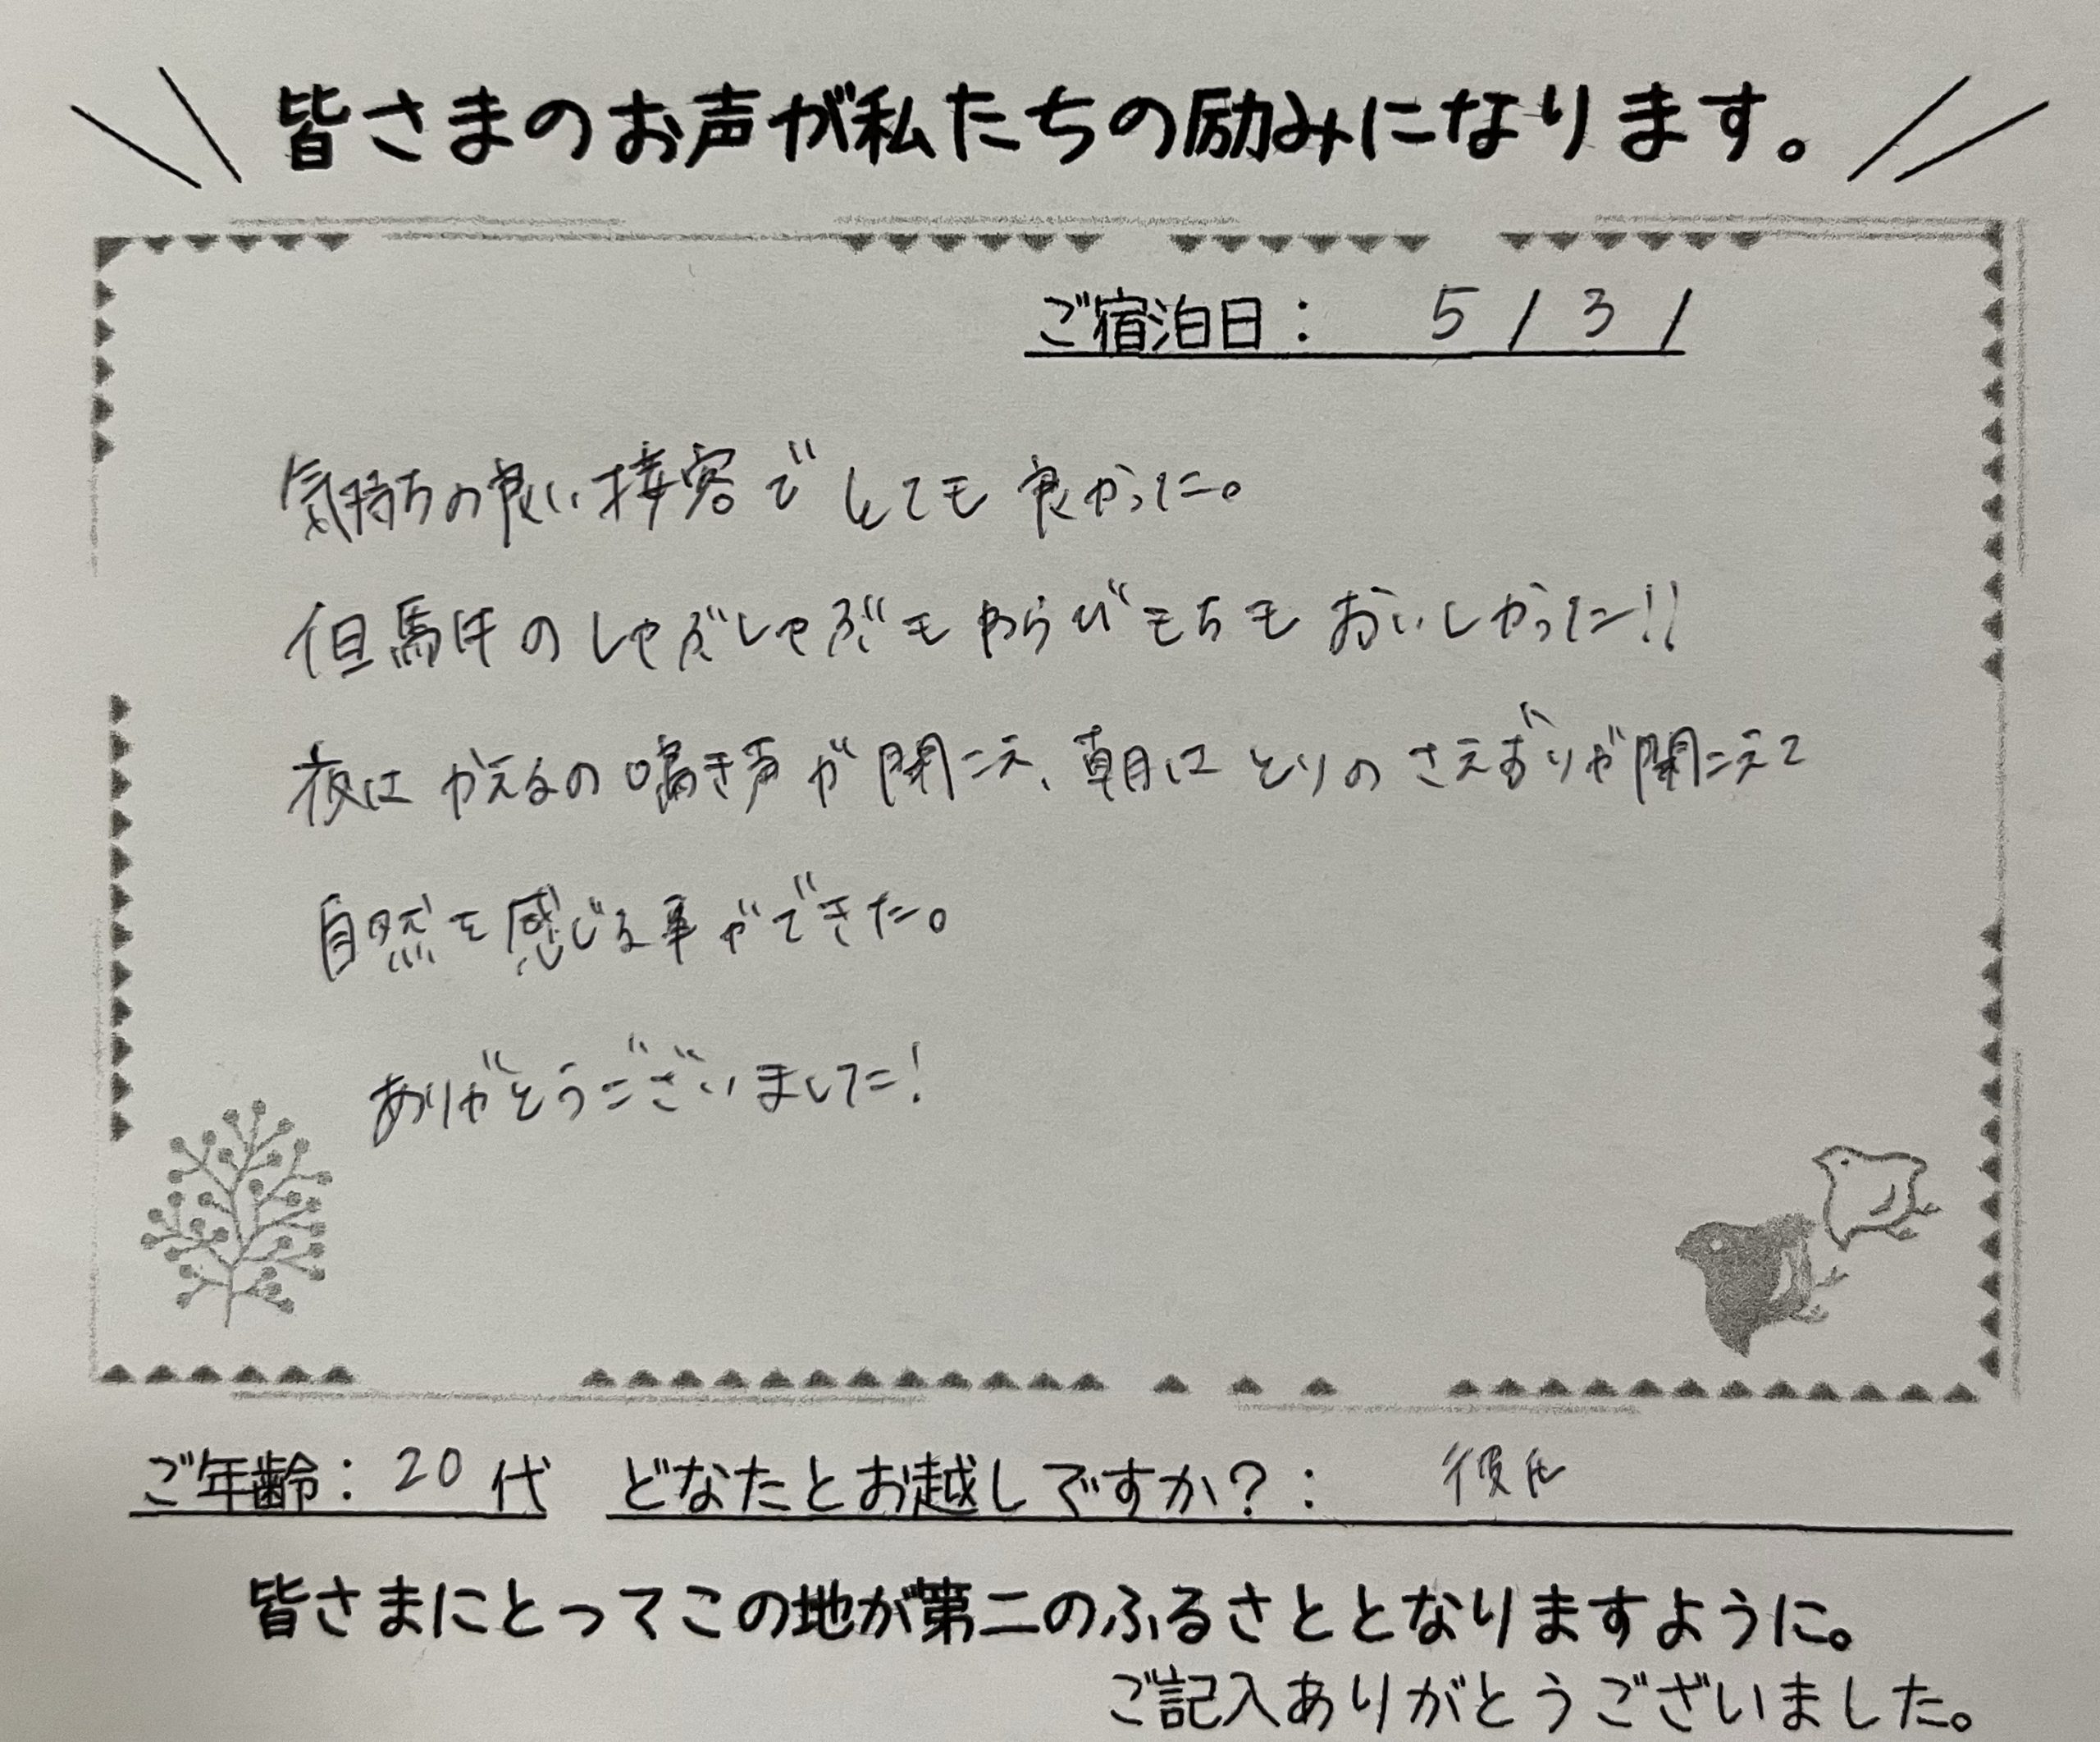 皆さまのお声が私たちの励みになります。
ご宿泊日： 5/31
気持ちの良い接客でとても良かった。
但馬牛のしゃぶしゃぶもわらびもちもおいしかった!!
夜はかえるの鳴き声が聞こえ、朝はとりのさえずりが聞こえて
自然を感じる事ができた。
ありがとうございました!
ご年齢：20代 どなたとお越しですか？： 彼氏
皆さまにとってこの地が第二のふるさととなりますように。
ご記入ありがとうございました。